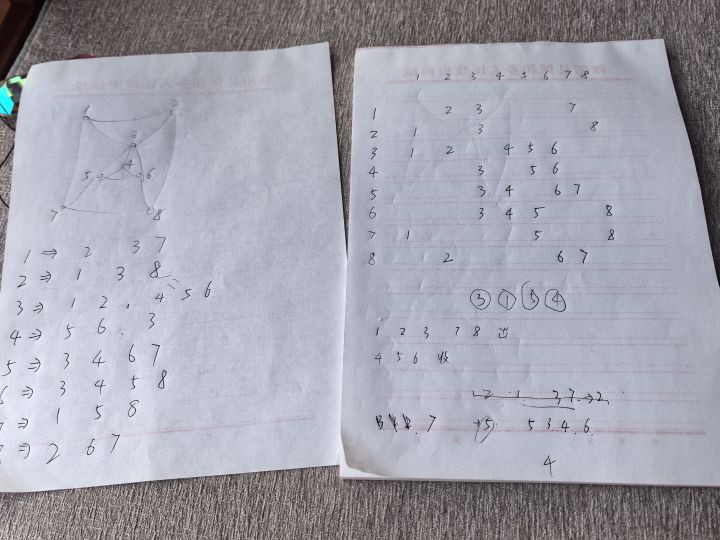 3
4
5 6
7 8
1 ⇒ 2 3 7
2 ⇒ 1 3 8
3 ⇒ 1 2 , 4 5 6
4 ⇒ 5 6 . 3
5 ⇒ 3 4 6 7
6 ⇒ 3 4 5 8
⇒ 1 5 8
⇒ 2 6 7
1 2 3 4 5 6 7 8
1 2 3 7
2 1 3 8
3 1 2 4 5 6
4 3 5 6
5 3 4 6 7
6 3 4 5 8
7 1 5 8
8 2 6 7
③ ① ④
1 2 3 7 8 出
4 5 6 收
2 1 3 7 → 2
7 → 5 5 3 4 6
4